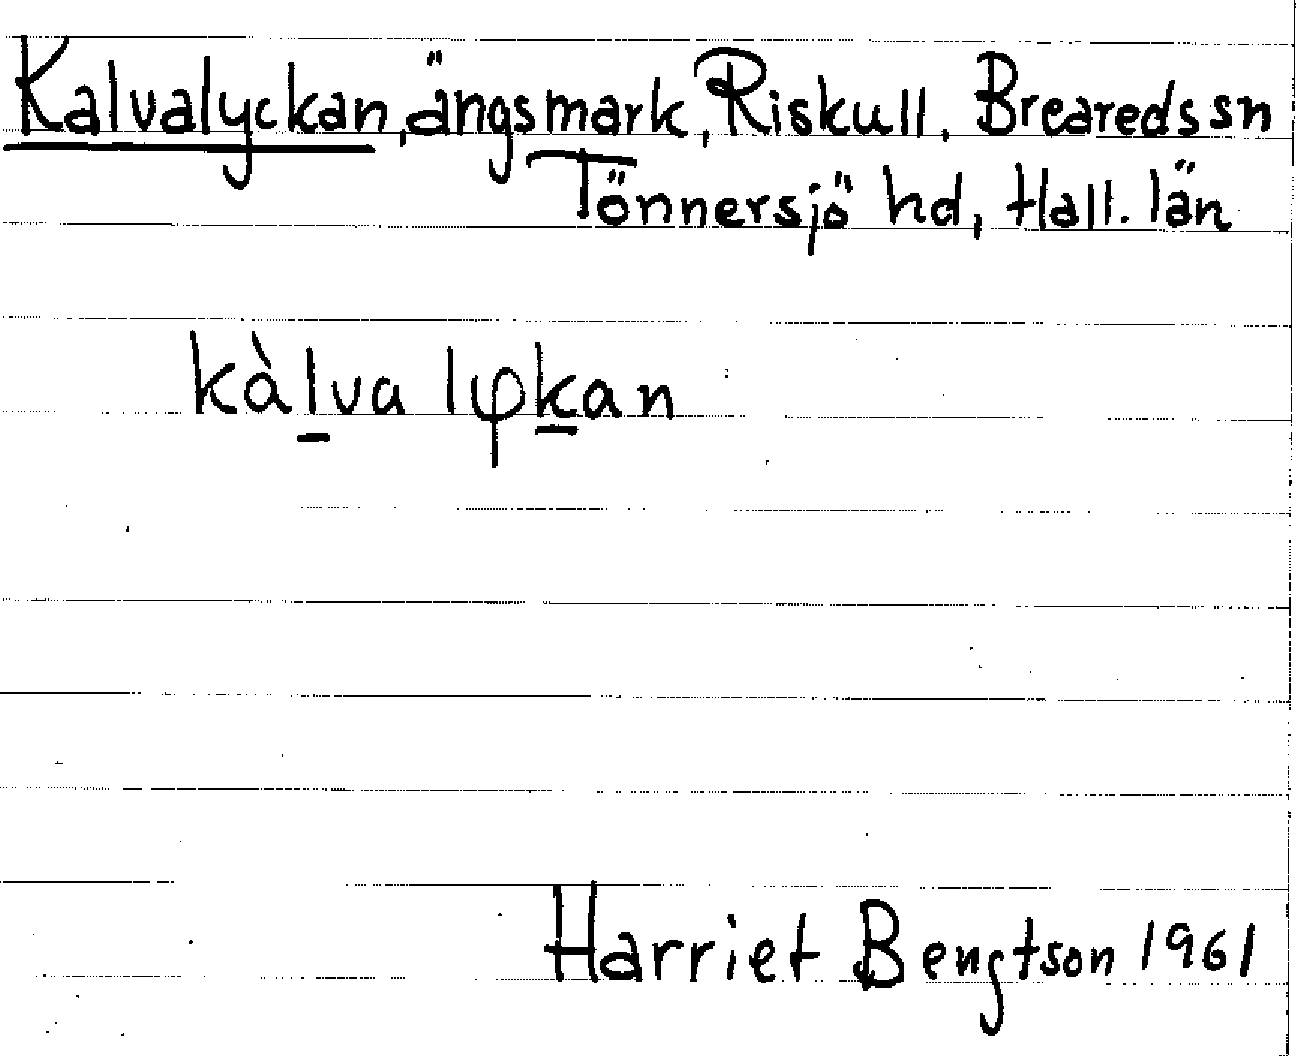 Kalvalyckan, ängsmark, Riskull, Breareds sn
Tönnersjö hd, Hall. län
kàlva lφkan
Harriet Bengtson 1961